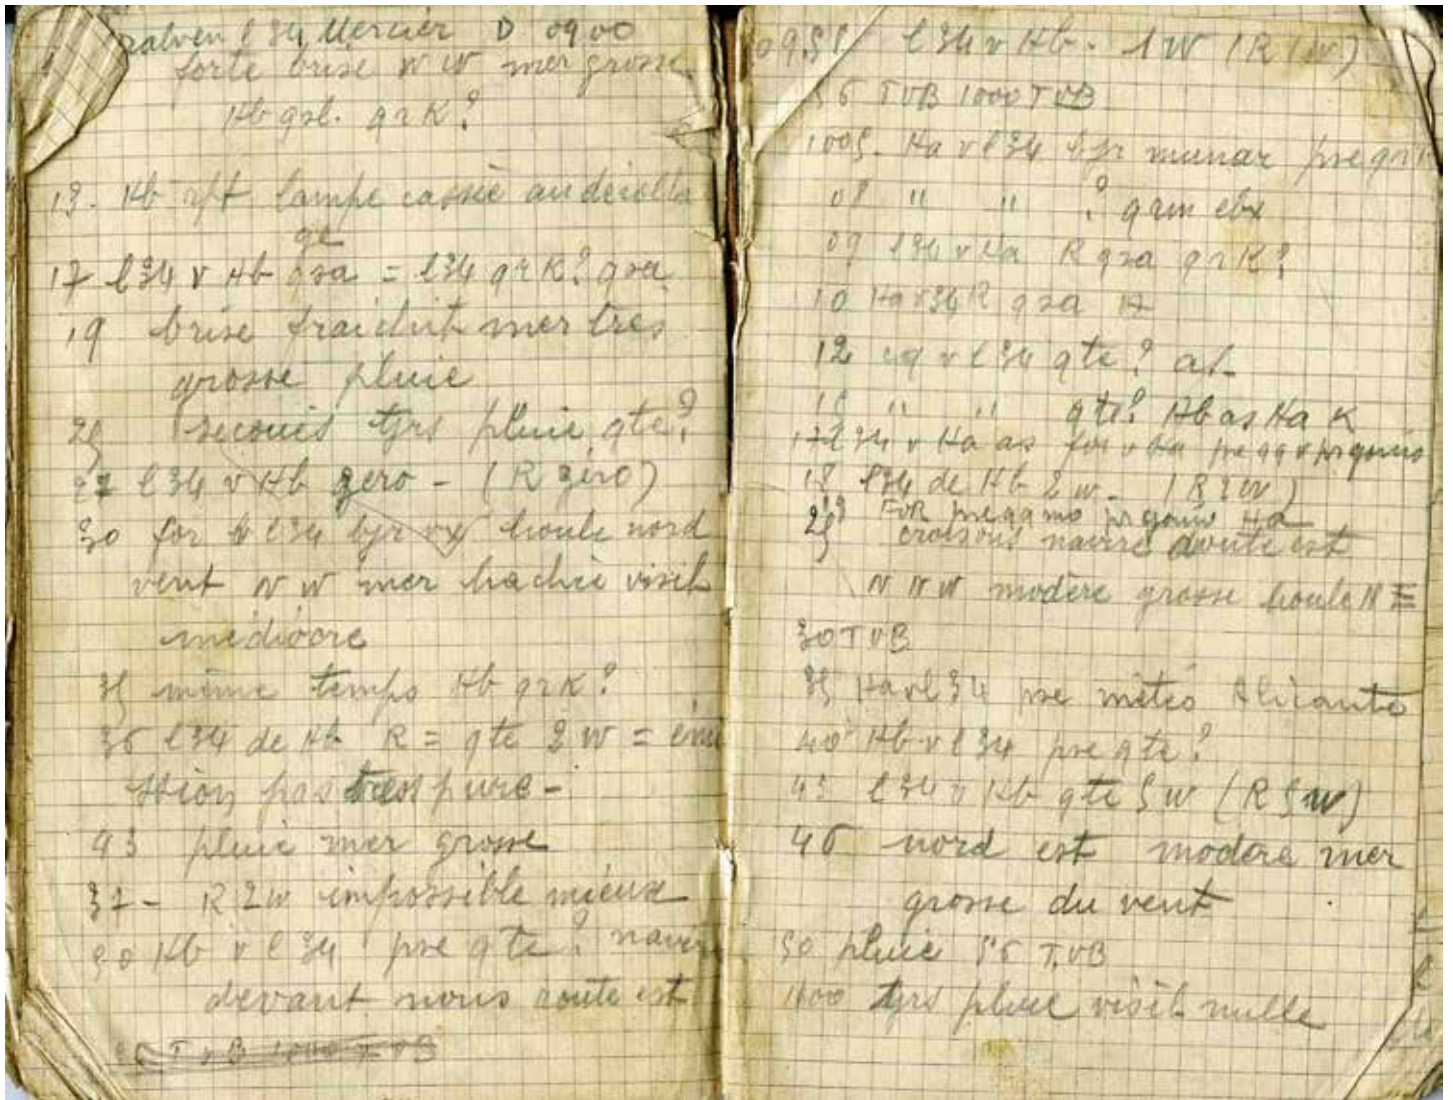 l34 Mercier D 0900
forte brise N W mer grosse
Hb qsl. qrk?
13. Hb lampe cassée au décolla
ge
17 l34 v Hb qsa = l34 qrk? qsa
19 brise fraichit mer très
grosse pluie
25 secoués tjrs pluie qte?
27 l34 v Hb zero - (R zéro)
30 for v l34 bjr vx houle nord
vent N W mer hachée visib
médiocre
35 même temps Hb qrk?
36 l34 de Hb R = qte 2 W = émi
ssion pas très pure -
43 pluie mer grosse
37 - R 2W impossible mieux
50 Hb v l34 pse qte? navire
devant nous route est
56 T v B 1000 T v B
0955 l34 v Hb. 1W (R 1W)
56 TVB 1000 TVB
1005. Ha v l34 bjr
08 " " ? qrm
09 l34 v Ha R qsa qrk?
10 Ha v 34 R qsa
12 cq v l34 qte?
15 " " qte? Hb as Ha K
17 l34 v Ha as for v Ha
18 l34 de Hb 2 W - (R 2W)
19 Ha
25 croisons navire route est
N N W modéré grosse houle N E
30 TVB
35 Ha v l34 pse météo Alicante
40 Hb v l34 pse qte?
43 l34 v Hb qte 5 W (R 5W)
46 nord est modéré mer
grosse du vent
50 pluie 56 T.VB
1100 tjrs pluie visib nulle